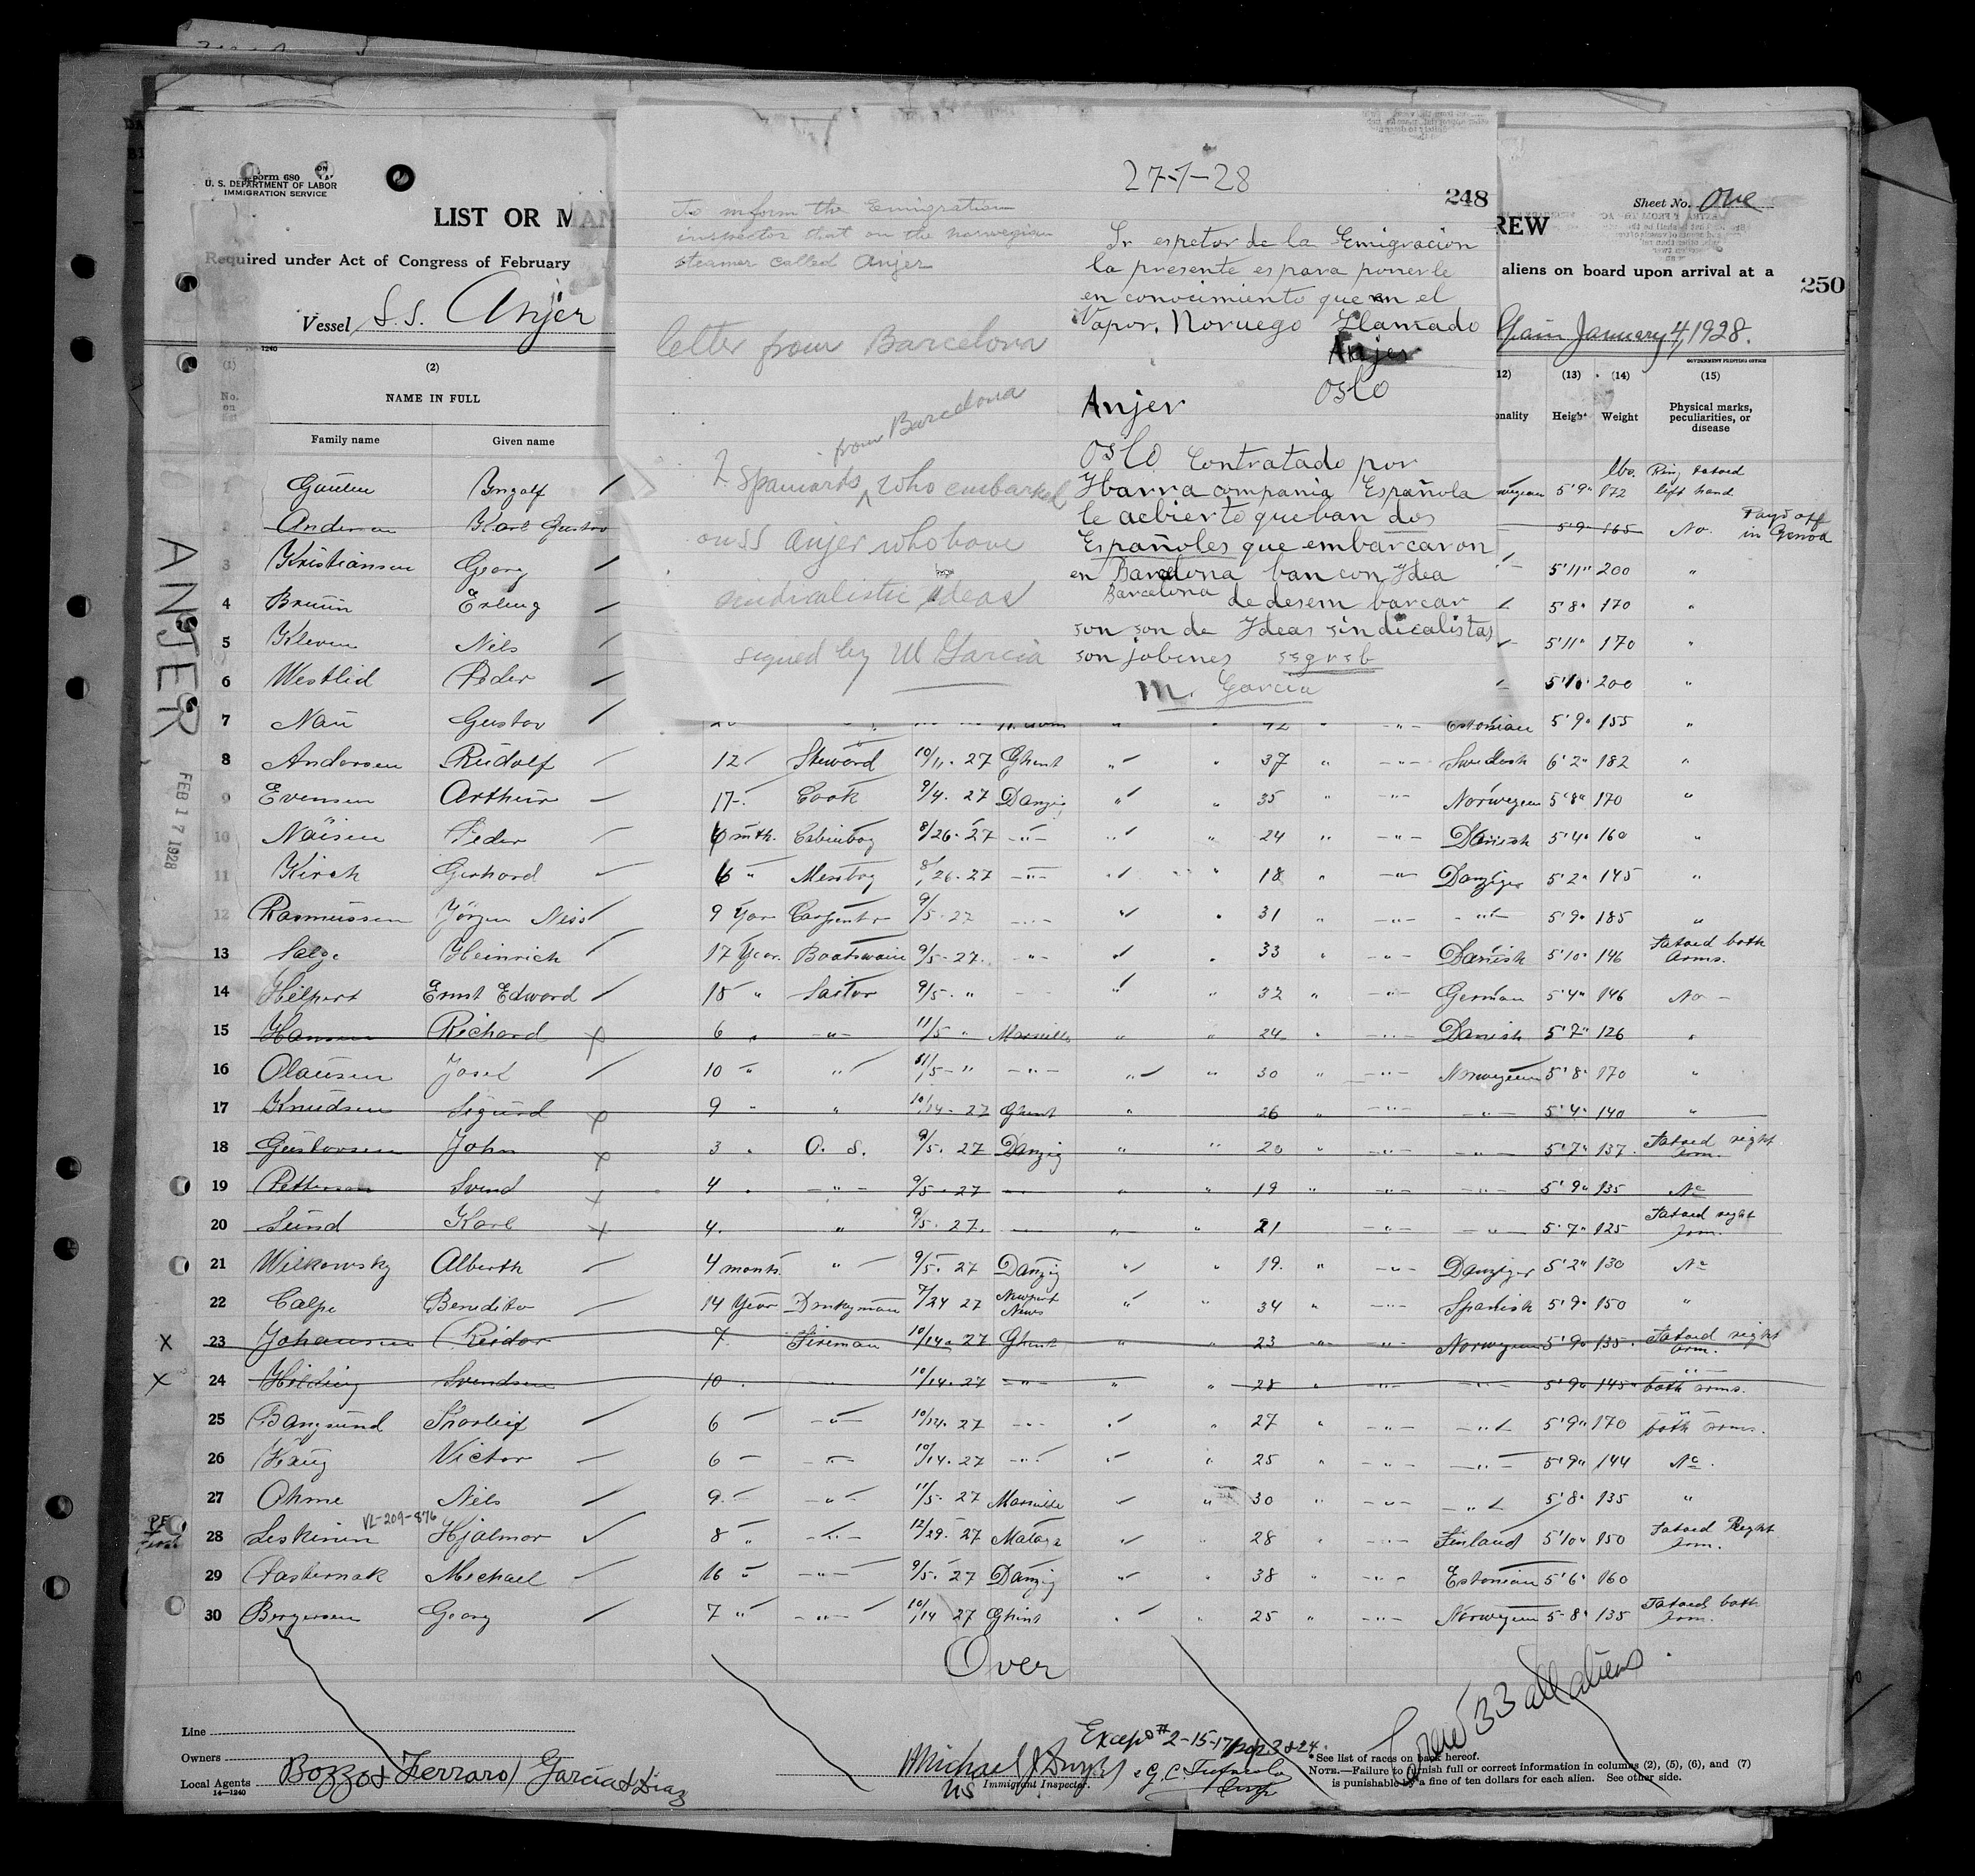 Form 680
U. S. DEPARTMENT OF LABOR
IMMIGRATION SERVICE
LIST OR MAN
Required under Act of Congress of February
Vessel S.S. Anjer
27-1-28
248
To inform the Emigration
inspector that on the norwegian
steamer called Anjer
letter from Barcelona
from Barcelona
2 Spaniards who embarked
on SS Anjer who have
sindicalistic ideas
signed by M Garcia
Sr espetor de la Emigracion
la presente es para ponerle
en conocimiento que en el
Vapor. Noruego Llamado
Anjer
Oslo
Anjer
Oslo Contratado por
Ybarra compania Española
le acbierto que ban dos
Españoles que embarcaron
en Barcelona ban con Ydea
Barcelona de desem barcar
son son de Ydeas sindicalistas
son jobenes ssgrsb
M. Garcia
Sheet No. One
REW
aliens on board upon arrival at a
250
Spain January 4, 1928.
GOVERNMENT PRINTING OFFICE
1240
(1) (2) 12) (13) (14) (15)
No. on list NAME IN FULL onality Height Weight Physical marks, peculiarities, or disease
Family name Given name
lbs.
1 5'9" 172 Ring tatoed left hand
2 Anderson Karl Gustav 5'9" 165 No. Pays off in Genoa
3 Kristiansen Georg 5'11" 200 "
4 Bruun Erling 5'8" 170 "
5 Kleven Nils 5'11" 170 "
6 Westlid Peder 200 "
7 Nau Gustav 42 " Estonian 5'9" 155 "
8 Andersen Rudolf 12 Steward 10/11. 27 Ghent " " 37 " " Swedish 6'2" 182 "
9 Evensen Arthur 17 Cook 9/4. 27 Danzig " " 35 " " Norwegian 5'8" 170 "
10 Peder 6 mth. Cabinboy 8/26. 27 " " " 24 " " Danish 5'4" 160 "
11 Kirch Gerhard 6 " Messboy 8/26. 27 " " " 18 " " Danziger 5'2" 145 "
12 Rasmussen Jörgen Niss 9 Year Carpenter 9/5. 27 " " 31 " " " 5'9" 185 "
13 Heinrich 17 Year. Boatswain 9/5. 27. " " 33 " " Danish 5'10" 146 Tatoed both arms.
14 Hilpert Ernst Edward 15 " Sailor 9/5. " " " 32 " " German 5'4" 146 No
15 Hansen Richard 6 " " 11/5 " Marseille " " 24 " Danish 5'7" 126 "
16 Olausen Josef 10 " " 11/5 " " " " 30 " " Norwegian 5'8" 170 "
17 Knudsen Sigurd 9 " " 10/14. 27 Ghent " 26 " " 5'4" 140 "
18 Gustavsen John 3 " O. S. 9/5. 27 Danzig " " 20 " " " 5'7" 137 Tatoed right arm.
19 Pettersen Svend 4 " " 9/5. 27 " " 19 " " " 5'9" 135 No
20 Sund Karl 4. " 9/5. 27. " " 21 " " 5'7" 125 Tatoed right arm.
21 Wilkowsky Alberth 4 month. " 9/5. 27 Danzig " " 19. " " Danziger 5'2" 130 No
22 Calpe Benedito 14 Year Donkeyman 7/24 27 Newport News " " 34 " " Spanish 5'9" 150 "
X 23 Johansen Reidar 7 Fireman 10/14. 27 Ghent " " 23 " " Norwegian 5'9" 135. Tatoed right arm.
X 24 Hilding Svendsen 10. " 10/14. 27 " " " 28 " " " 5'9" 145 " both arms.
25 Bangsund Thorleif 6 " 10/14. 27 " " " 27 " " " 5'9" 170 " both arms.
26 Victor 6 " 10/14. 27 " " " 25 " " " 5'9" 144 No.
27 Ohme Nils 9 " 11/5. 27 Marseille " 30 " " " 5'8" 135 "
28 Leskinen VL-209-876 Hjalmar 8 " " 12/29. 27 Malaga " 28 " " Finland 5'10" 150 Tatoed Right arm.
29 Pasternak Michael 16 " " 9/5. 27 Danzig " " 38 " " Estonian 5'6" 160
30 Borgersen Georg 7 " " 10/14 27 Ghent " " 25 " " Norwegian 5-8" 135 Tatoed both arm.
ANJER
FEB 17 1928
Over
Crew 33 all aliens
Line
Owners
Local Agents Bozzo & Ferraro / Garcia & Diaz
14—1240
Except # 2-15-17
Immigrant Inspector.
US
*See list of races on back hereof.
NOTE.—Failure to furnish full or correct information in columns (2), (5), (6), and (7)
is punishable by a fine of ten dollars for each alien. See other side.